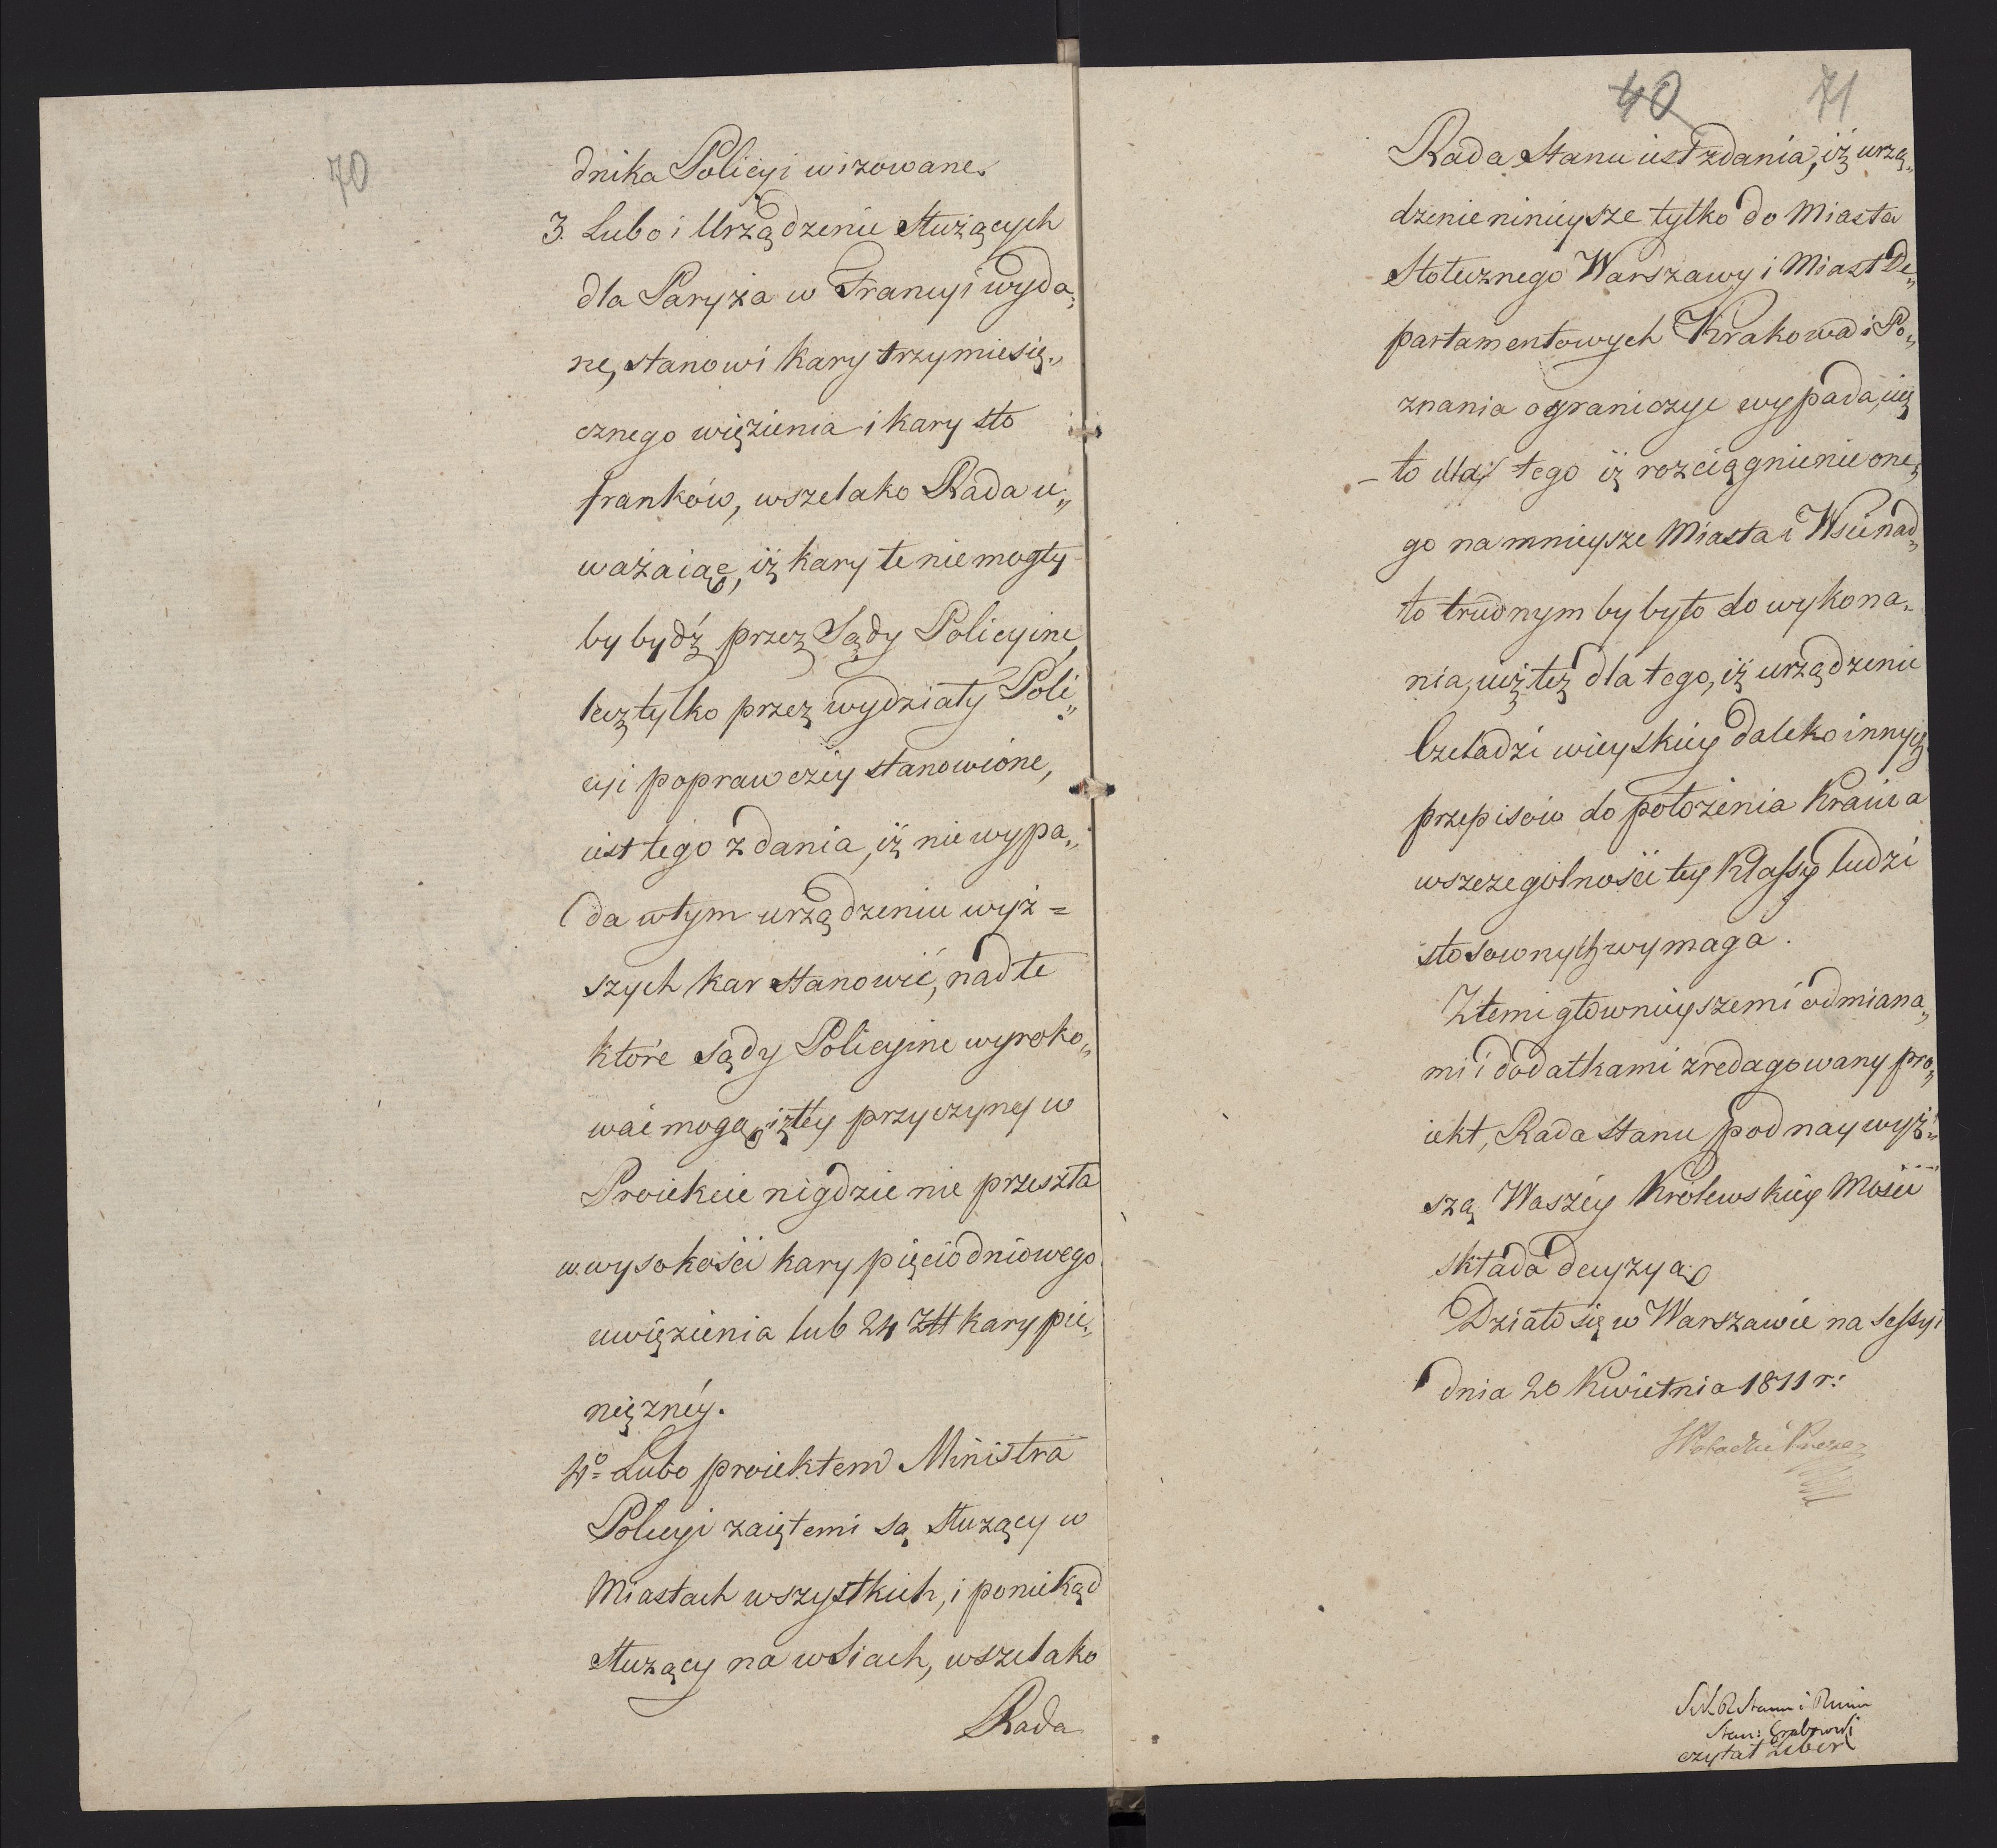 70
dnika Policyi wizowane.
3. Lubo i Urządzenie Służących
dla Paryża w Francyi wyda„
ne, stanowi kary trzymiesię„
cznego więzienia i kary sto
franków, wszelako Rada u„
ważaiąc, iż kary te nie mogły
by bydź przez Sądy Policyine,
lecz tylko przez wydziały Poli„
cyi poprawczéy stanowione,
iest tego zdania, iż nie wypa„
da w tym urządzeniu wyż=
szych kar stanowić, nad te
które sądy Policyine wyroko„
wać mogą, i z tey przyczyny w
Proiekcie nigdzie nie przeszła
w wysokości kary pięciodniowego
uwięzienia lub 24 Złł kary pie„
niężnéy.
4º Lubo proiektem Ministra
Policyi zaiętemi są służący w
Miastach wszystkich, i poniekąd
służący na wsiach, wszelako
Rada
40 71
Rada Stanu iest zdania, iż urzą„
dzenie ninieysze tylko do Miasta
Stołecznego Warszawy i Miast De„
partamentowych Krakowa i Po„
znania ograniczyć wypada, iuż
to dla tego iż rozciągnienie one„
go na mnieysze Miasta i Wsie nad„
to trudnym by było do wykona„
nia, iuż też dla tego, iż urządzenie
Czeladzi wieyskiey daleko innych
przepisów do położenia Kraiu a
wszczególności tey Klassy ludzi
stosownych wymaga.
Z temi głownieyszemi odmiana„
mi i dodatkami zredagowany pro„
iekt, Rada Stanu pod naywyż„
szą Waszéy Królewskiey Mości
składa decyzyą.
Działo się w Warszawie na Sessyi
dnia 20 Kwietnia 1811 r:
Stan: Grabowski
czytał